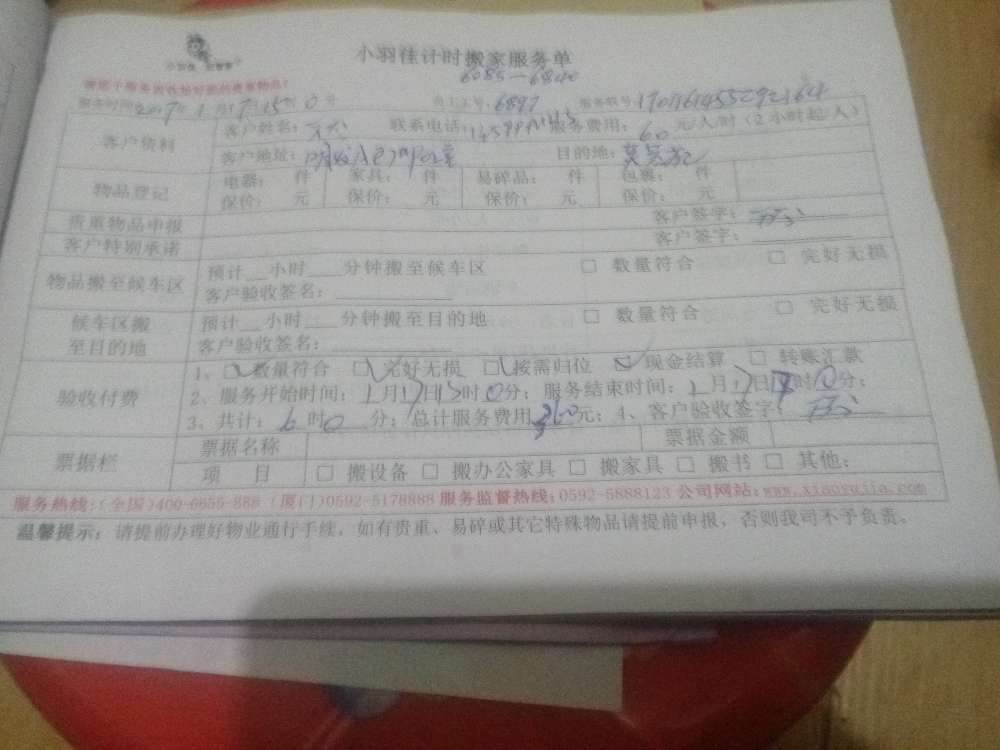 小羽佳计时搬家服务单
6085-6840
服务时间:2017年1月17日15时0分 员工工号:6897 服务单号:
客户资料 客户姓名: 联系电话: 服务费用:60元/人/时(2小时起/人)
客户地址: 目的地:
物品登记 电器: 件 家具: 件 易碎品: 件 包裹: 件
保价: 元 保价: 元 保价: 元 保价: 元
贵重物品申报 客户签字:
客户特别承诺 客户签字:
物品搬至候车区 预计__小时___分钟搬至候车区 □ 数量符合 □ 完好无损
客户验收签名:
候车区搬至目的地 预计__小时___分钟搬至目的地 □ 数量符合 □ 完好无损
客户验收签名:
验收付费 1、□数量符合 □完好无损 □按需归位 □现金结算 □ 转账汇款
2、服务开始时间:1月17日15时0分;服务结束时间:1月17日时0分;
3、共计:6时0分;总计服务费用360元;4、客户验收签字:
票据栏 票据名称 票据金额
项 目 □ 搬设备 □ 搬办公家具 □ 搬家具 □ 搬书 □ 其他:
服务热线:(全国)400-6655-888 (厦门)0592-5178888 服务监督热线:0592-5888123 公司网站:www.xiaoyujia.com
温馨提示:请提前办理好物业通行手续,如有贵重、易碎或其它特殊物品请提前申报,否则我司不予负责。